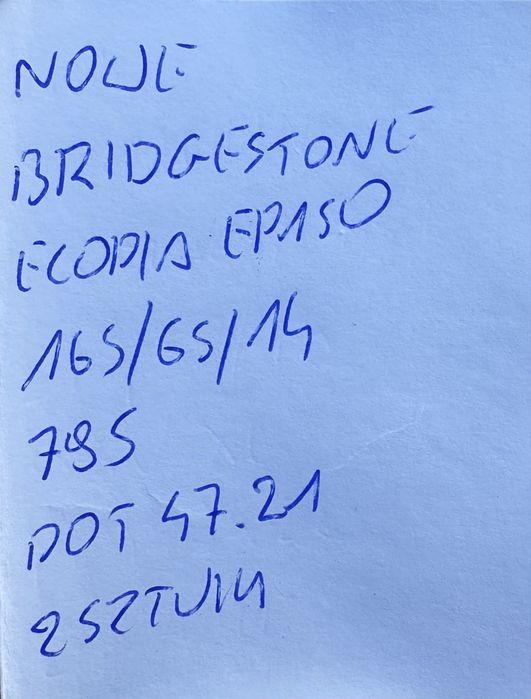 NOWE
BRIDGESTONE
ECOPIA EP150
165/65/14
79S
DOT 47.21
2 SZTUKI